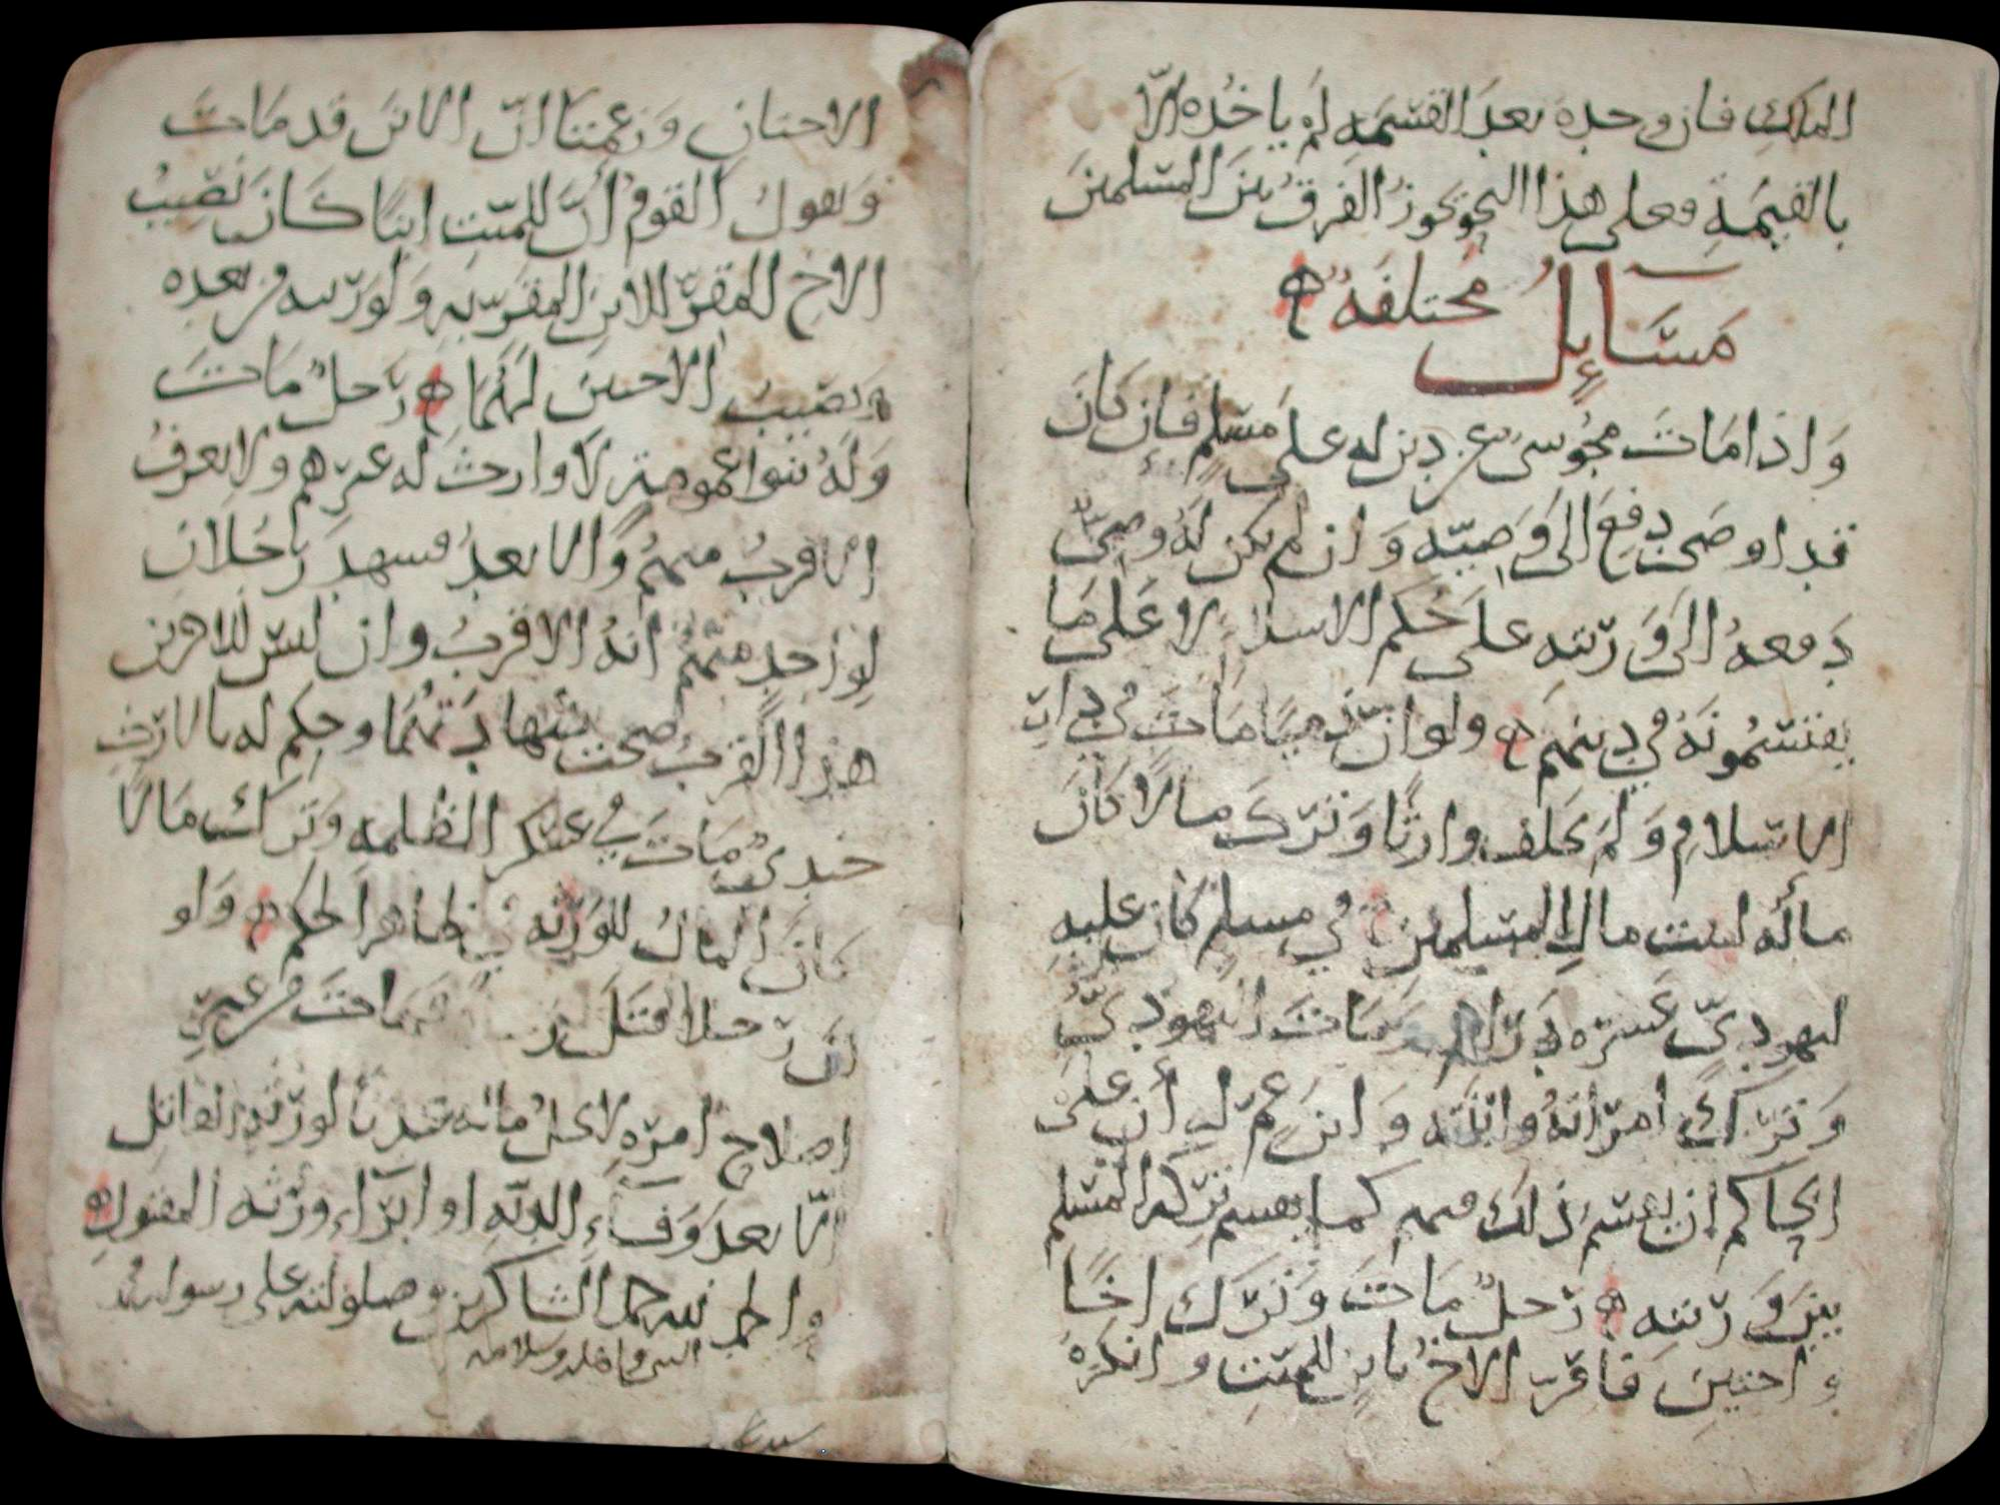 المالك فان وجده بعد القسمه لم ياخذه الا
بالقيمة وعلى هذا النحو تجوز الفرق بين المسلمين
مسائل مختلفة
واذا مات مجوسي عن دين له على مسلم فان كان
قد اوصى دفع الى وصيّه وان لم يكن له وصيّ
دفعه الى ورثته على حكم الاسلام لا على ما
يقتسمونه في دينهم ولو ان ذميا مات في دار
الاسلام ولم يخلف وارثا وترك مالا كان
ماله لبيت مال المسلمين في مسلم كان عليه
ليهوديّ عشره دراهم ومات اليهوديّ
وترك امرأته وابنته وابن عم له ان على
الحاكم ان يقسم ذلك فيهم كما يقسم تركه المسلم
بين ورثته رجل مات وترك اخا
واختين فاقرّ الاخ بابن للميت وانكره
الاختان وزعمتا انّ الابن قد مات
ويقول القوم انّ للميّت ابنا كان نصيب
الاخ المقرّ للابن المقرّ به ولورثته من بعده
ونصيب الاختين لهما رجل مات
وله بنوا عمومة لا وارث له غيرهم ولا يعرف
الاقرب منهم والابعد فشهد رجلان
لواحد منهم انه الاقرب وان ليس للاخرين
هذا القرب صحت شهادتهما وحكم له بالارث
جندي مات في عسكر الظلمه وترك مالا
كان المال للورثه في ظاهر الحكم ولو
ان رجلا قتل فمات من غير
اصلاح امره لا يحل ماله لورثة القاتل
الا بعد وفاء الدية او ابراء ورثه المقتول
والحمد لله حمد الشاكرين وصلواته على رسوله محمد
النبي واهله وسلامه